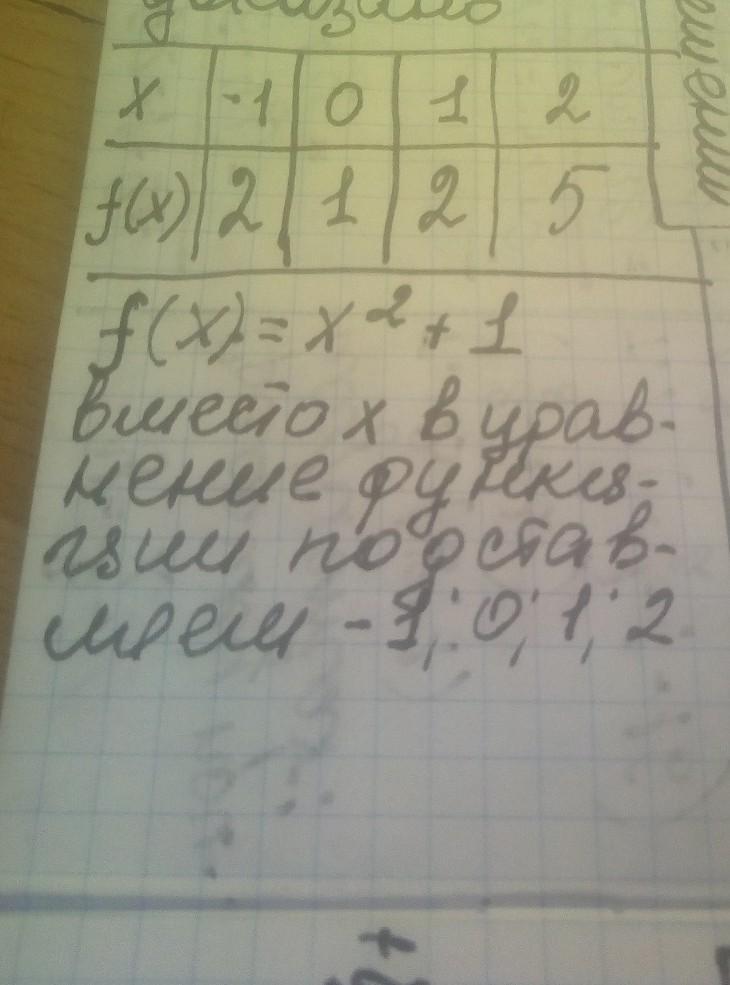 x -1 0 1 2
f(x) 2 1 2 5
f(x) = x² + 1
вместо x в урав-
нение функ-
ции подстав-
ляем -1; 0; 1; 2